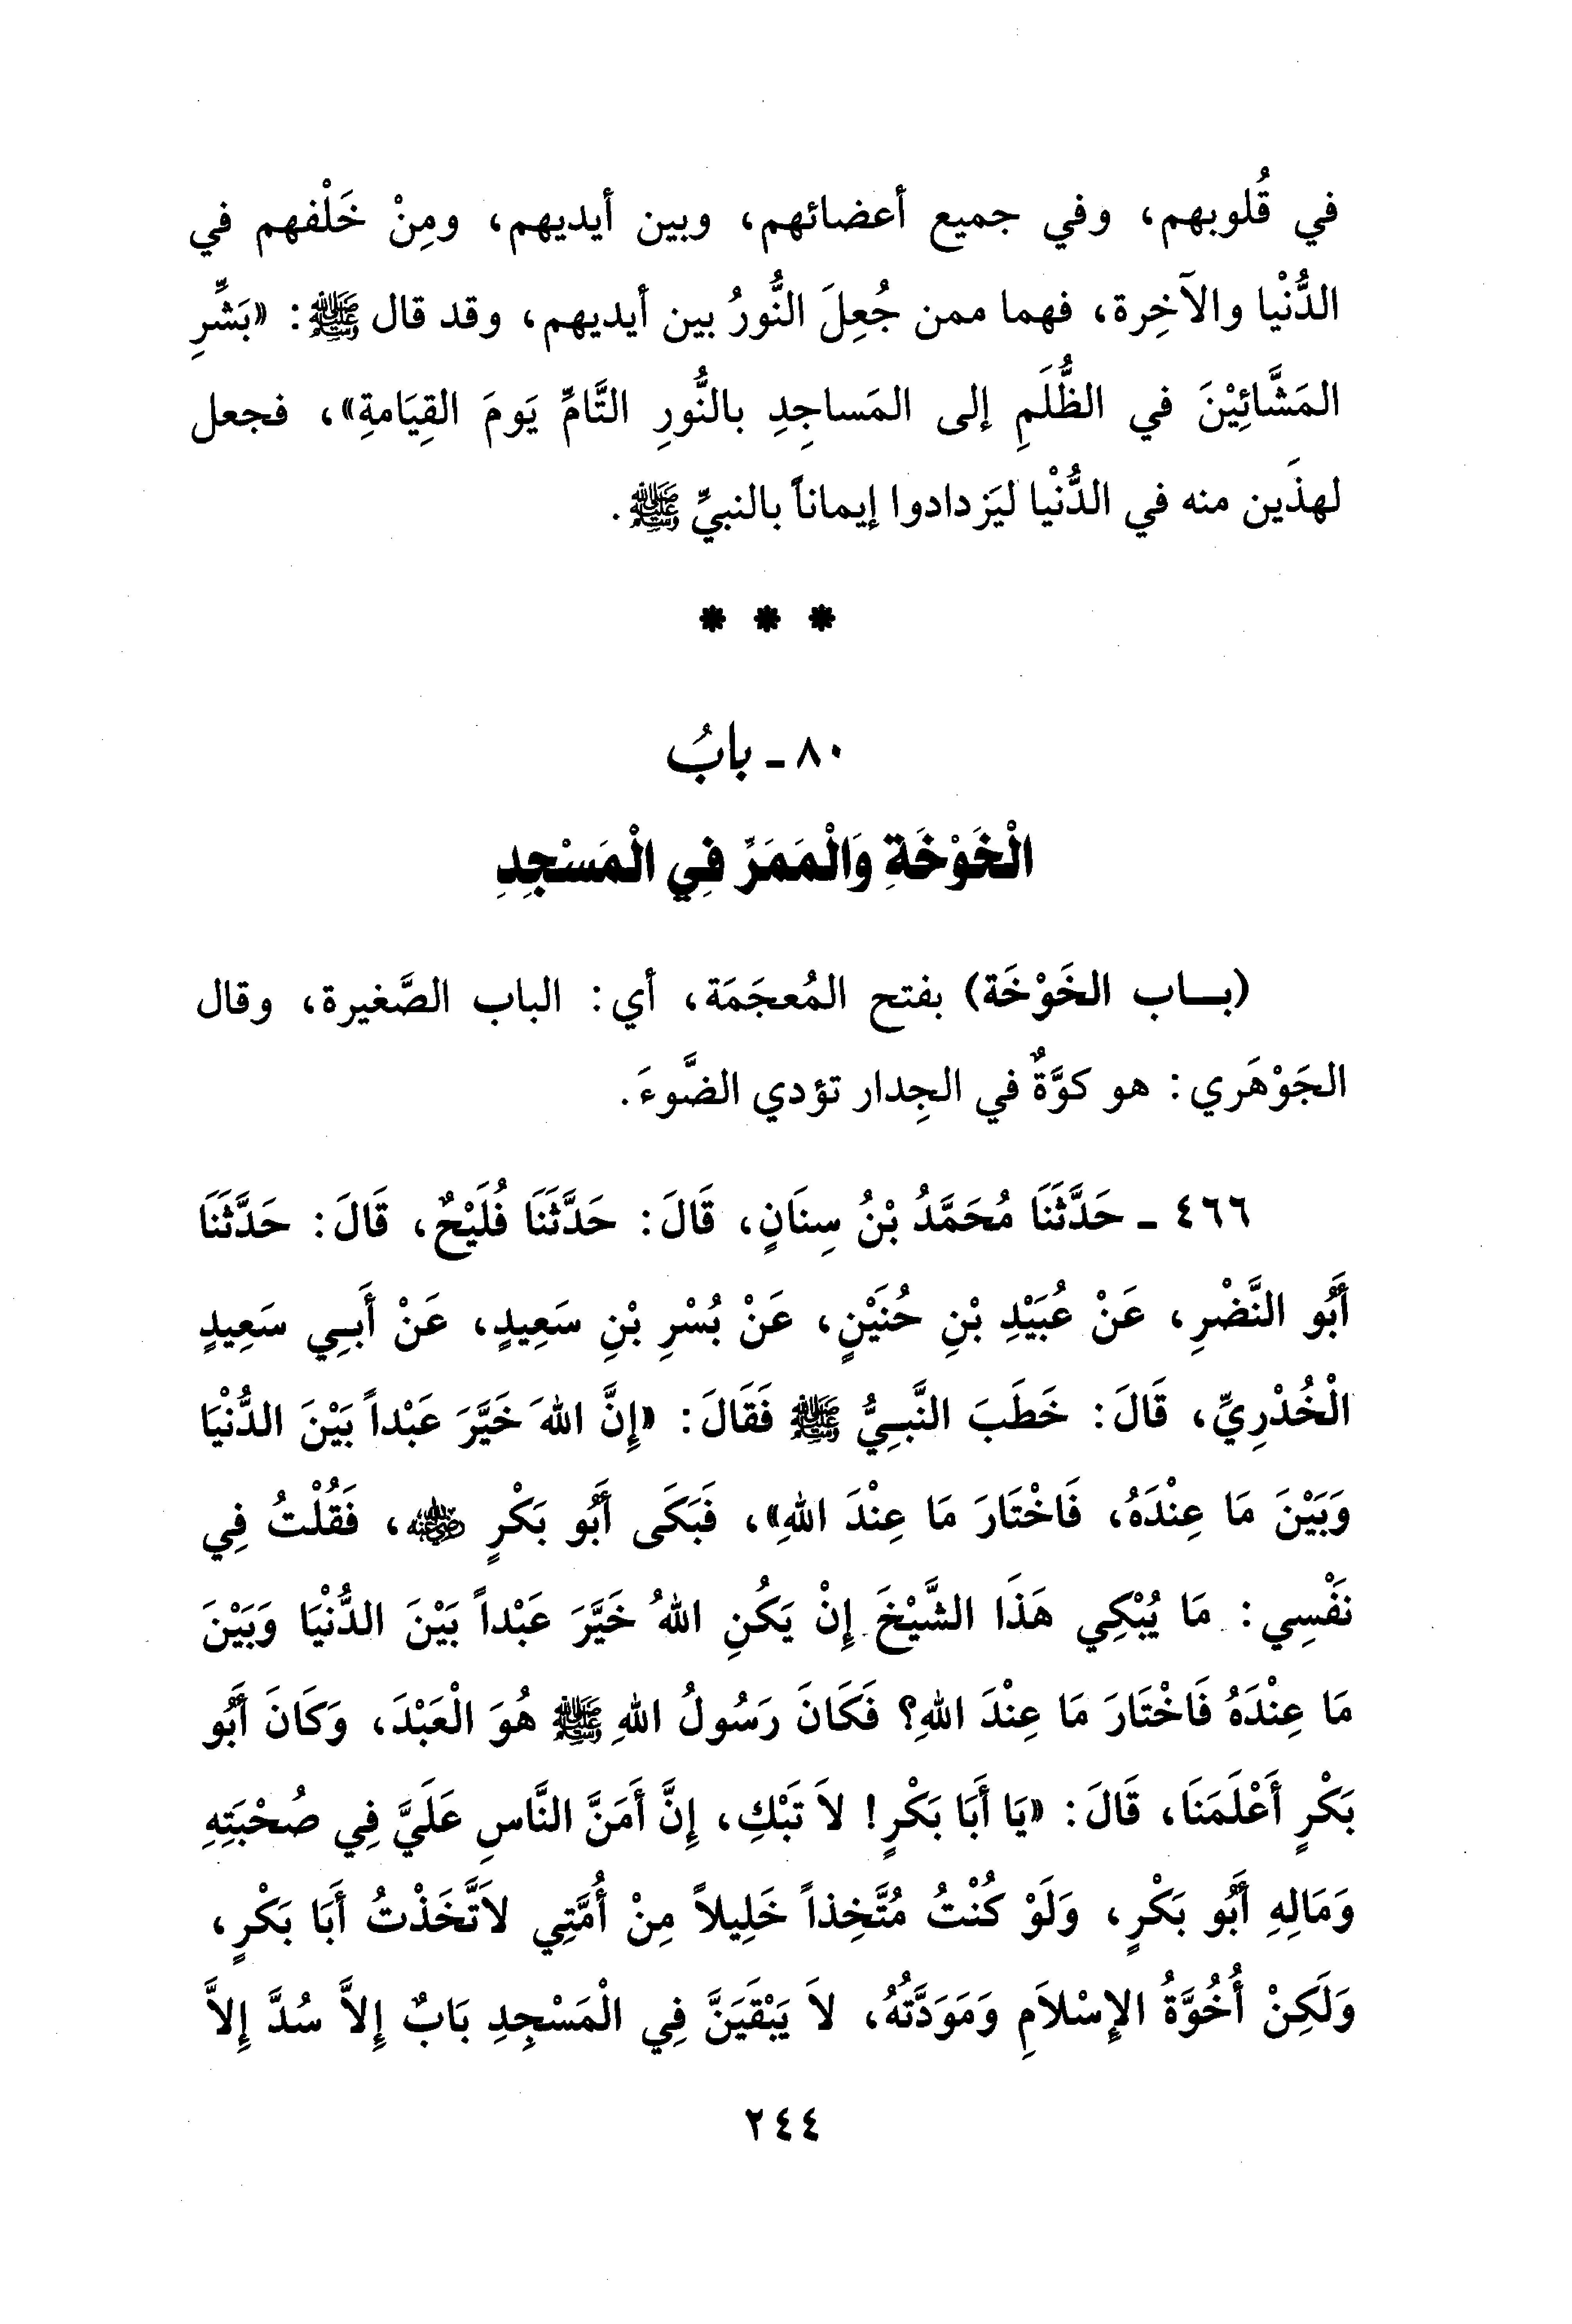 في قُلوبهم، وفي جميع أعضائهم، وبين أيديهم، ومِنْ خَلْفهم في
الدُّنْيا والآخِرة، فهما ممن جُعِلَ النُّورُ بين أيديهم، وقد قال ﷺ: «بَشِّرِ
المَشَّائِيْنَ في الظُّلَمِ إلى المَساجِدِ بالنُّورِ التَّامِّ يَومَ القِيَامةِ»، فجعل
لهذَين منه في الدُّنْيا ليَزدادوا إيماناً بالنبيِّ ﷺ.
* * *
٨٠ - بابُ
الْخَوْخَةِ وَالْمَمَرِّ فِي الْمَسْجِدِ
(بـاب الخَوْخَة) بفتح المُعجَمَة، أي: الباب الصَّغيرة، وقال
الجَوْهَري: هو كوَّةٌ في الجِدار تؤدي الضَّوءَ.
٤٦٦ - حَدَّثَنَا مُحَمَّدُ بْنُ سِنَانٍ، قَالَ: حَدَّثَنَا فُلَيْحٌ، قَالَ: حَدَّثَنَا
أَبُو النَّضْرِ، عَنْ عُبَيْدِ بْنِ حُنَيْنٍ، عَنْ بُسْرِ بْنِ سَعِيدٍ، عَنْ أَبِي سَعِيدٍ
الْخُدْرِيِّ، قَالَ: خَطَبَ النَّبِيُّ ﷺ فَقَالَ: «إِنَّ اللهَ خَيَّرَ عَبْداً بَيْنَ الدُّنْيَا
وَبَيْنَ مَا عِنْدَهُ، فَاخْتَارَ مَا عِنْدَ اللهِ»، فَبَكَى أَبُو بَكْرٍ رضي الله عنه، فَقُلْتُ فِي
نَفْسِي: مَا يُبْكِي هَذَا الشَّيْخَ إِنْ يَكُنِ اللهُ خَيَّرَ عَبْداً بَيْنَ الدُّنْيَا وَبَيْنَ
مَا عِنْدَهُ فَاخْتَارَ مَا عِنْدَ اللهِ؟ فَكَانَ رَسُولُ اللهِ ﷺ هُوَ الْعَبْدَ، وَكَانَ أَبُو
بَكْرٍ أَعْلَمَنَا، قَالَ: «يَا أَبَا بَكْرٍ! لاَ تَبْكِ، إِنَّ أَمَنَّ النَّاسِ عَلَيَّ فِي صُحْبَتِهِ
وَمَالِهِ أَبُو بَكْرٍ، وَلَوْ كُنْتُ مُتَّخِذاً خَلِيلاً مِنْ أُمَّتِي لاَتَّخَذْتُ أَبَا بَكْرٍ،
وَلَكِنْ أُخُوَّةُ الإِسْلاَمِ وَمَوَدَّتُهُ، لاَ يَبْقَيَنَّ فِي الْمَسْجِدِ بَابٌ إِلاَّ سُدَّ إِلاَّ
٢٤٤